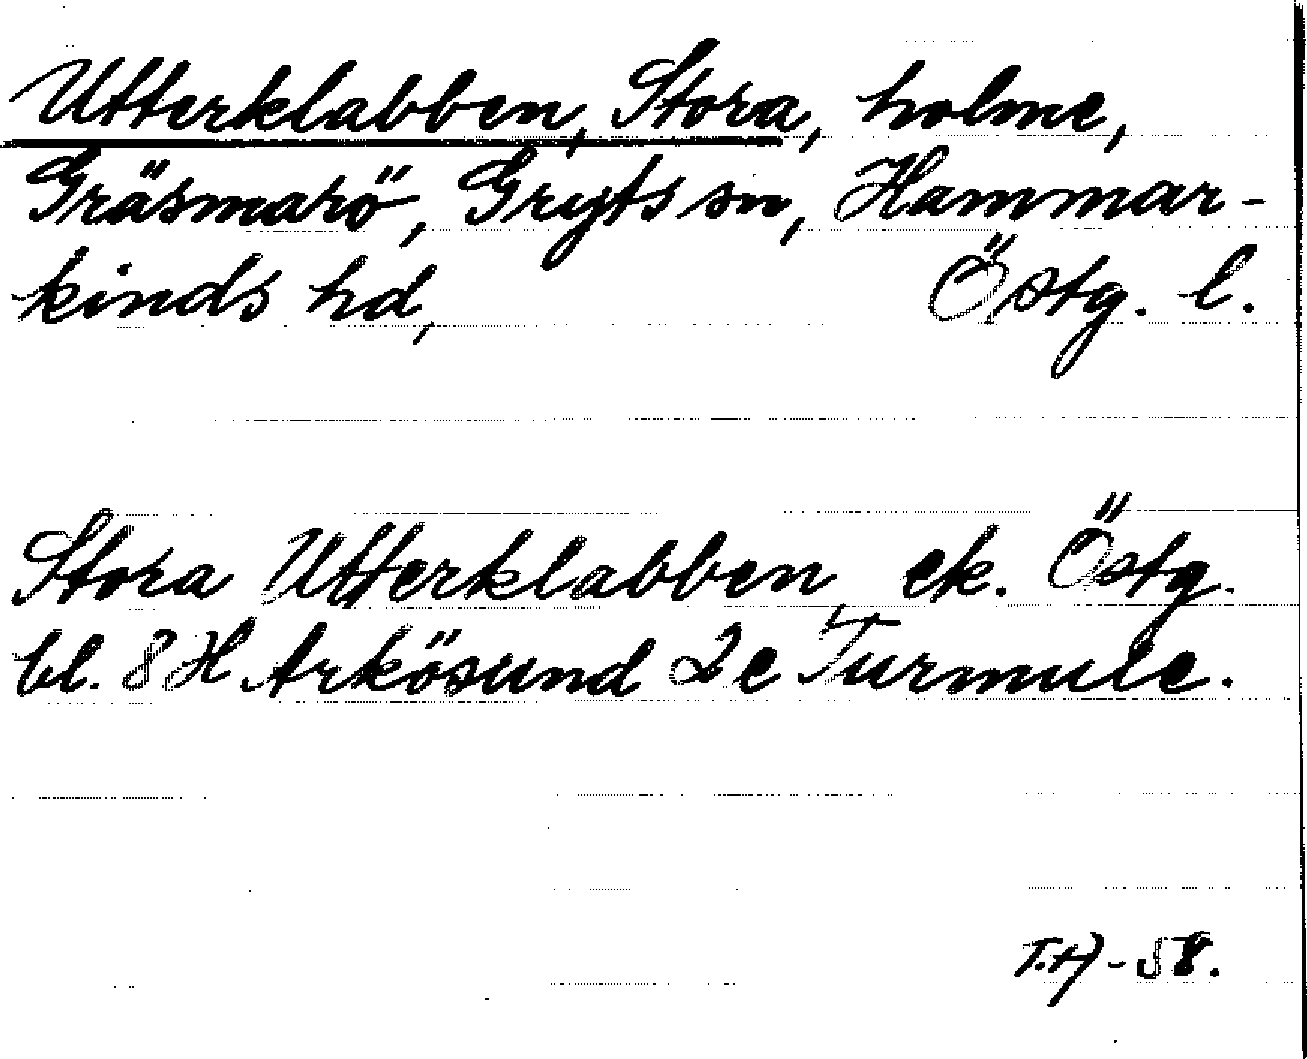 Utterklabben, Stora, holme,
Gräsmarö, Gryts sn, Hammar-
kinds hd, Östg. l.
Stora Utterklabben, ek. Östg.
bl. 8 H Arkösund 2e Turmule.
T.H-58.